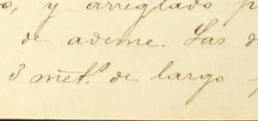 y arreglado
de ademe. Las
3 met.s de largo